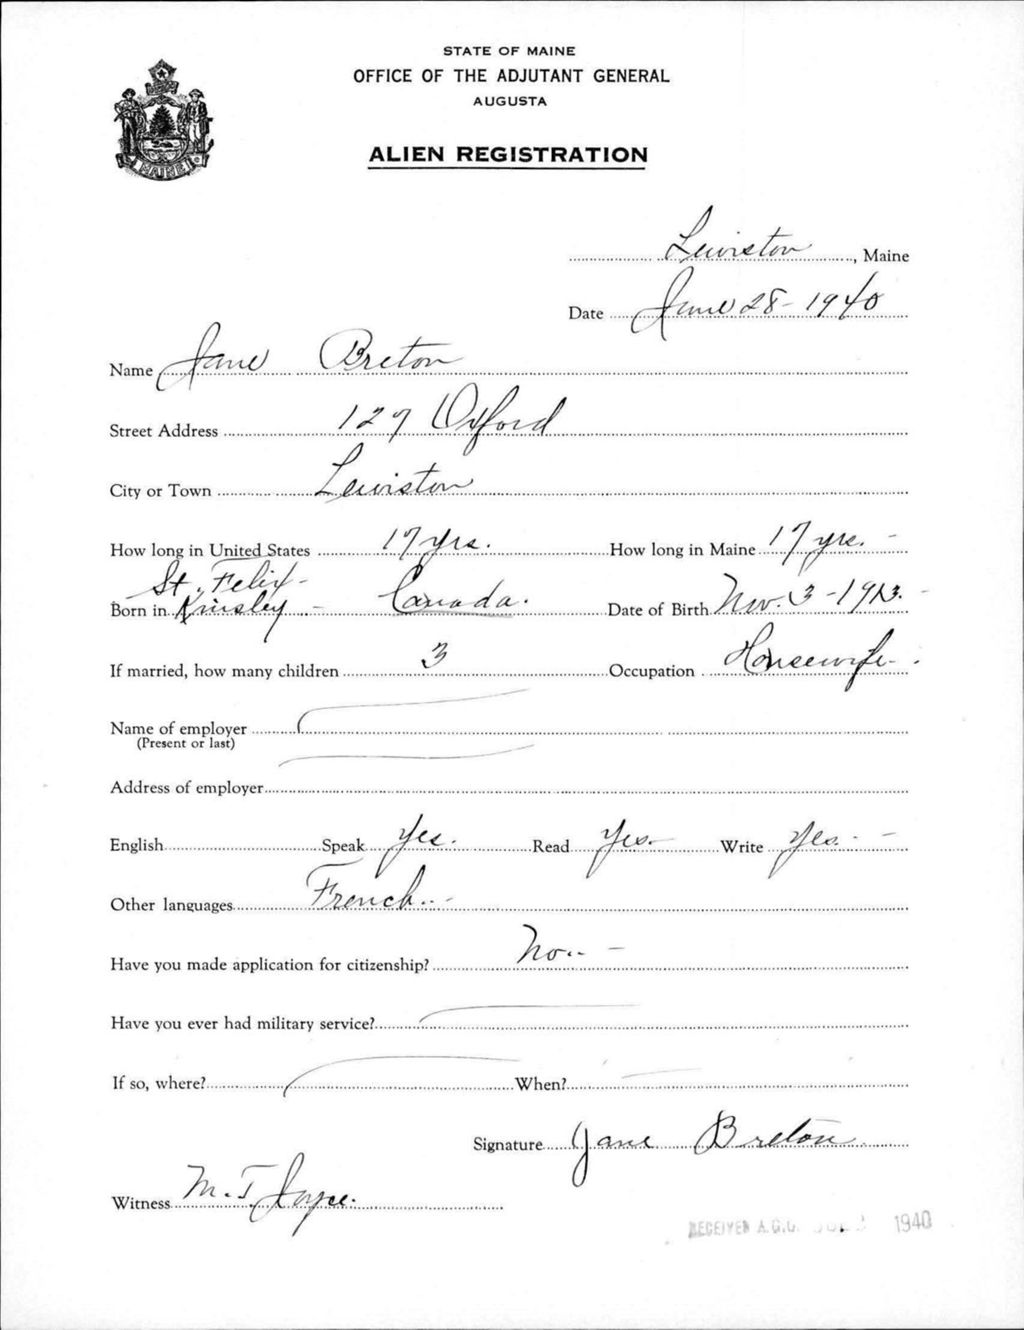 STATE OF MAINE
OFFICE OF THE ADJUTANT GENERAL
AUGUSTA
ALIEN REGISTRATION
MAINE
Lewiston, Maine
Date June 28-1940
Name Jane Breton
Street Address 127 Oxford
City or Town Lewiston
How long in United States 17 yrs. How long in Maine 17 yrs. -
St. Felix -
Born in Kinsley - Canada. Date of Birth Nov. 3 - 1913. -
If married, how many children 3 Occupation Housewife.
Name of employer
(Present or last)
Address of employer
English Speak Yes. Read Yes. Write Yes. -
Other languages French. -
Have you made application for citizenship? No. -
Have you ever had military service?
If so, where? When?
Signature Jane Breton
Witness M. T. Joyce.
RECEIVED A.G.O. 1940